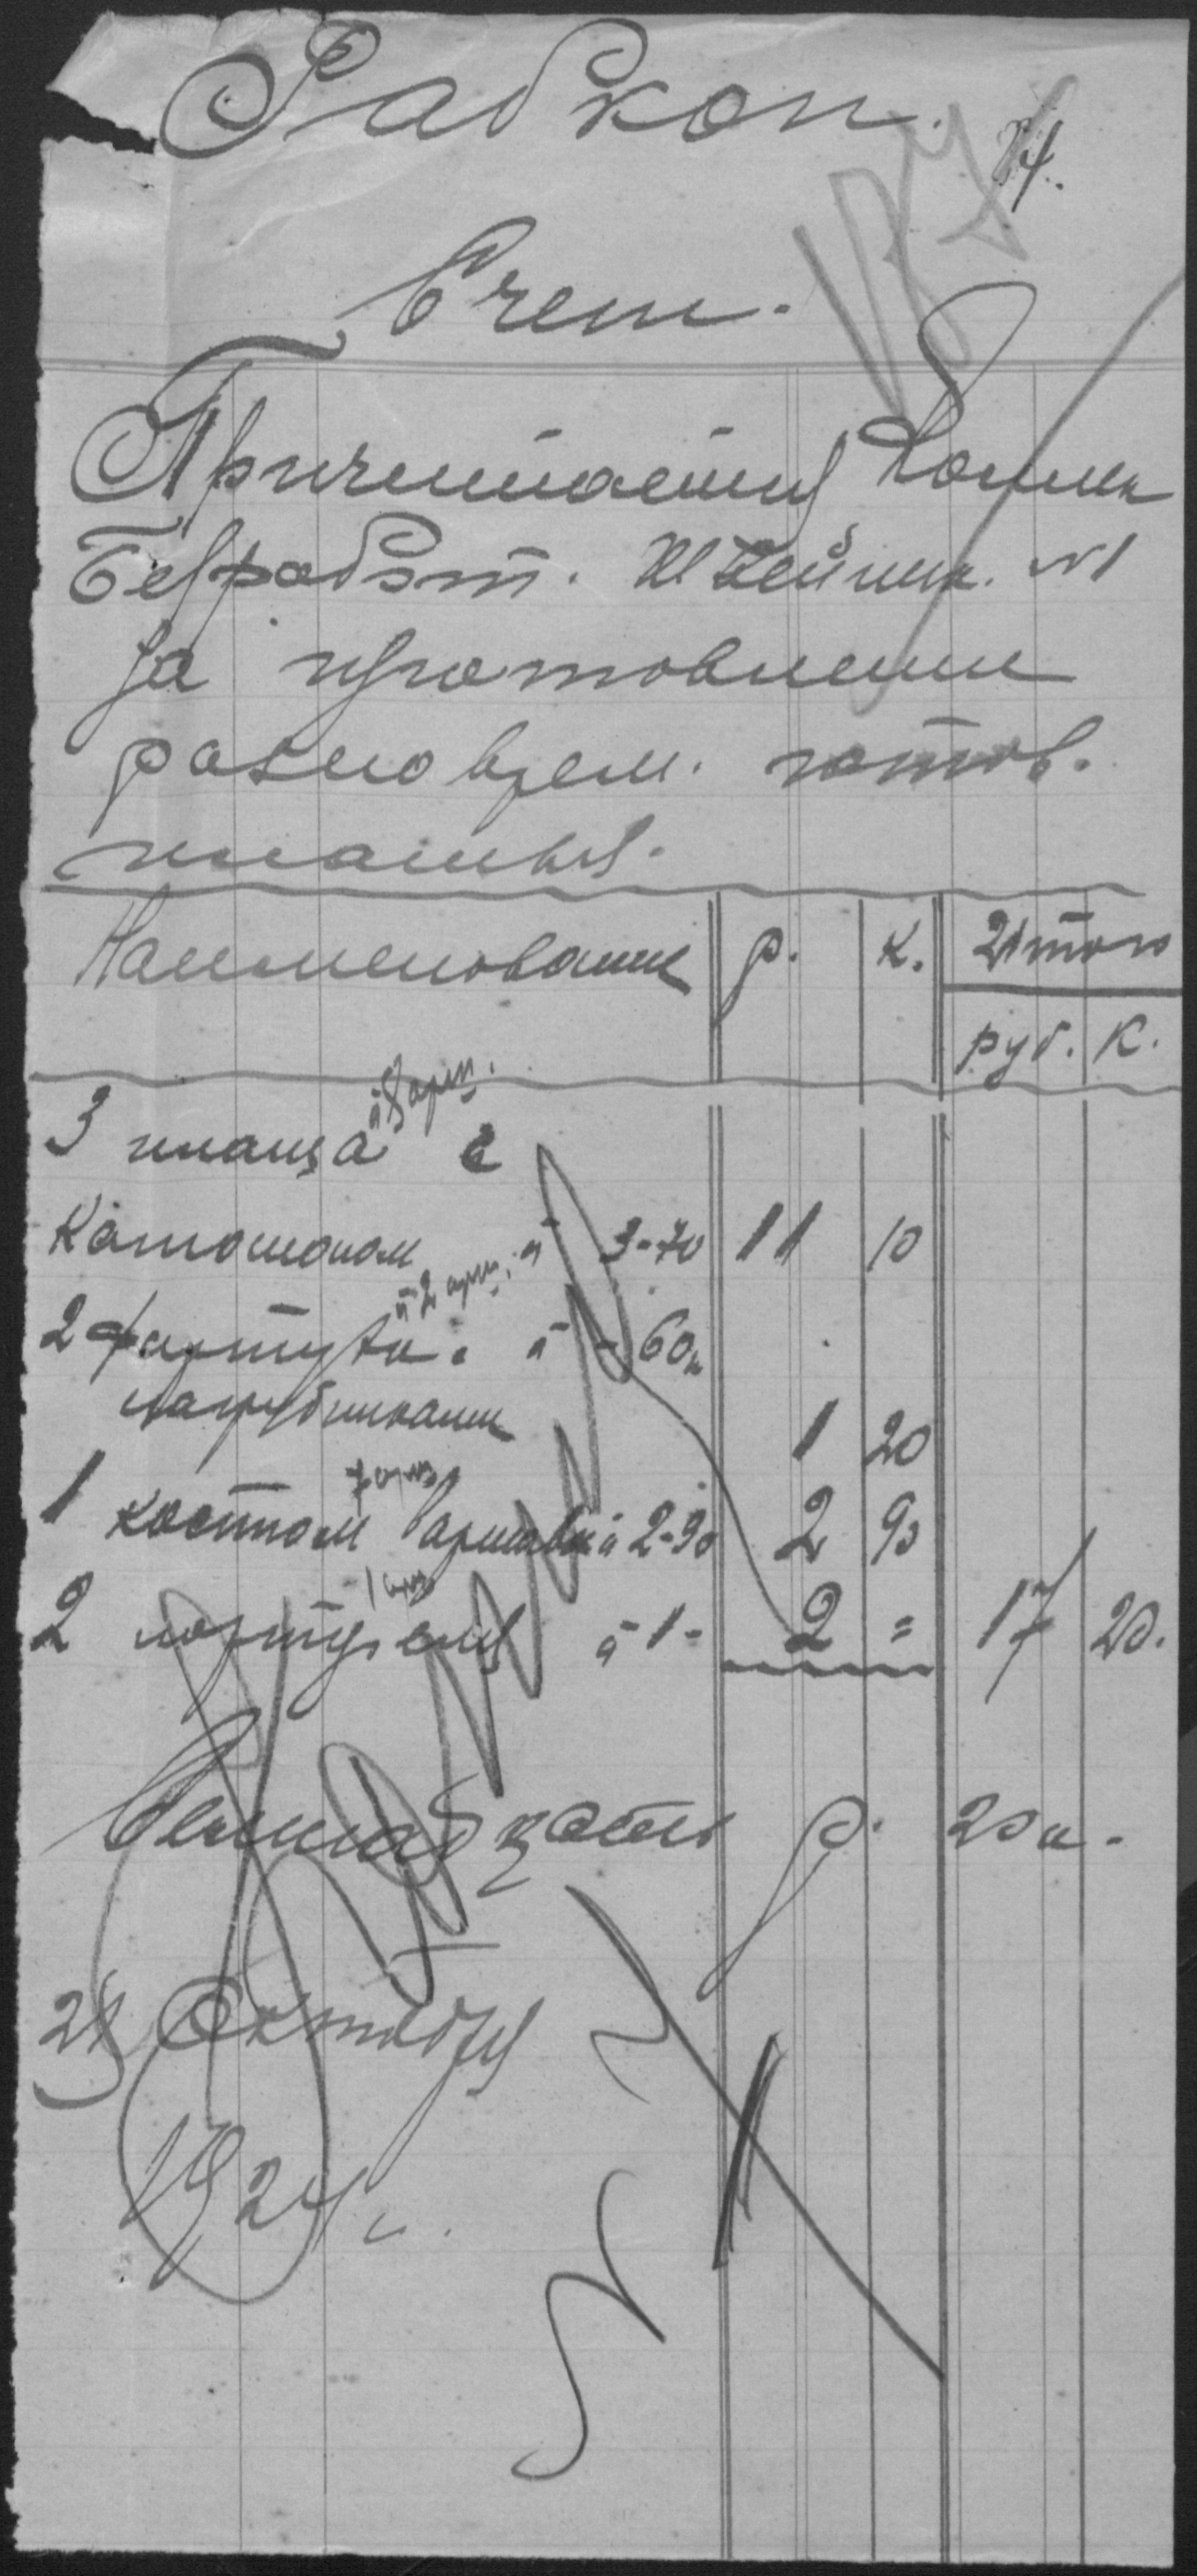 Рабкоп.
14.
Счет.
Причитается Колл.
Безработ. Швейник. №1
За изготовление
разновремен. готов.
платья.
Наименование р. к. Итого
руб. к.
3 плаща à 8 арш. с
Капюшоном à 3-70 11 10
2 фартука à 2 арш. à -60к
нарубниками 1 20
1 костюм 7 арш. à 2-90 2 90
2 à 1- 2 = 17 20.
Семнадцать р. 20 к.
Октября
1924 г.